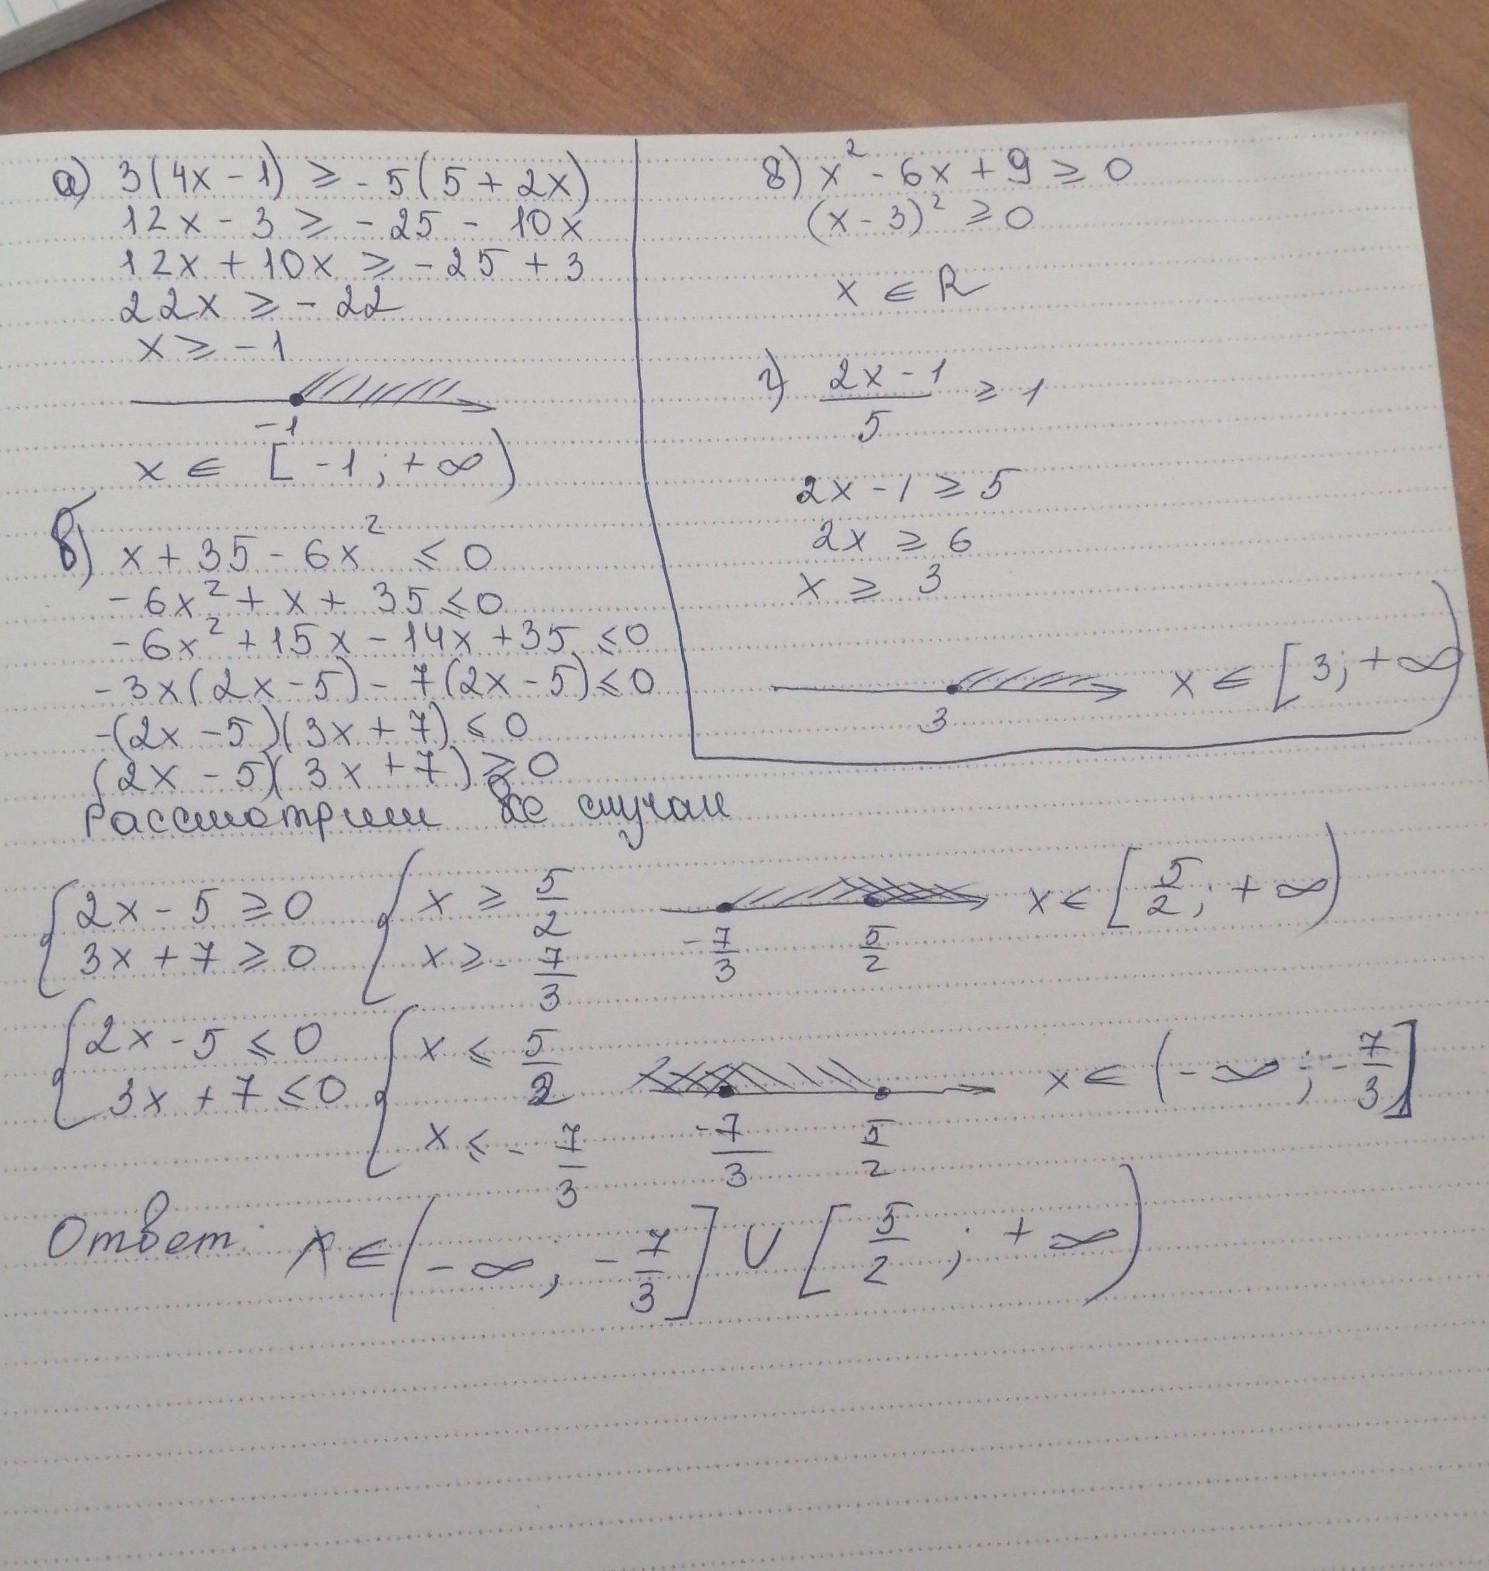 а) 3(4x - 1) ≥ -5(5 + 2x)
12x - 3 ≥ -25 - 10x
12x + 10x ≥ -25 + 3
22x ≥ -22
x ≥ -1
-1
x ∈ [-1; +∞)
б) x + 35 - 6x² ≤ 0
-6x² + x + 35 ≤ 0
-6x² + 15x - 14x + 35 ≤ 0
-3x(2x - 5) - 7(2x - 5) ≤ 0
-(2x - 5)(3x + 7) ≤ 0
(2x - 5)(3x + 7) ≥ 0
Рассмотрим все случаи
{2x - 5 ≥ 0 {x ≥ 5/2
3x + 7 ≥ 0 x ≥ -7/3
-7/3 5/2 x ∈ [5/2; +∞)
{2x - 5 ≤ 0 {x ≤ 5/2
3x + 7 ≤ 0 x ≤ -7/3
-7/3 5/2 x ∈ (-∞; -7/3]
Ответ: x ∈ (-∞; -7/3] ∪ [5/2; +∞)
в) x² - 6x + 9 ≥ 0
(x - 3)² ≥ 0
x ∈ R
г) (2x - 1)/5 ≥ 1
2x - 1 ≥ 5
2x ≥ 6
x ≥ 3
3 x ∈ [3; +∞)